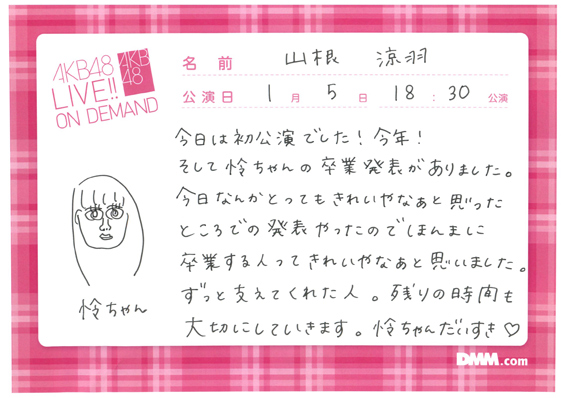 AKB48
LIVE!!
ON DEMAND
AKB
48
名前 山根 涼羽
公演日 1月 5日 18:30 公演
今日は初公演でした！今年！
そして怜ちゃんの卒業発表がありました。
今日なんかとってもきれいやなぁと思った
ところでの発表やったのでほんまに
卒業する人ってきれいやなぁと思いました。
ずっと支えてくれた人。残りの時間も
大切にしていきます。怜ちゃんだいすき♡
怜ちゃん
DMM.com